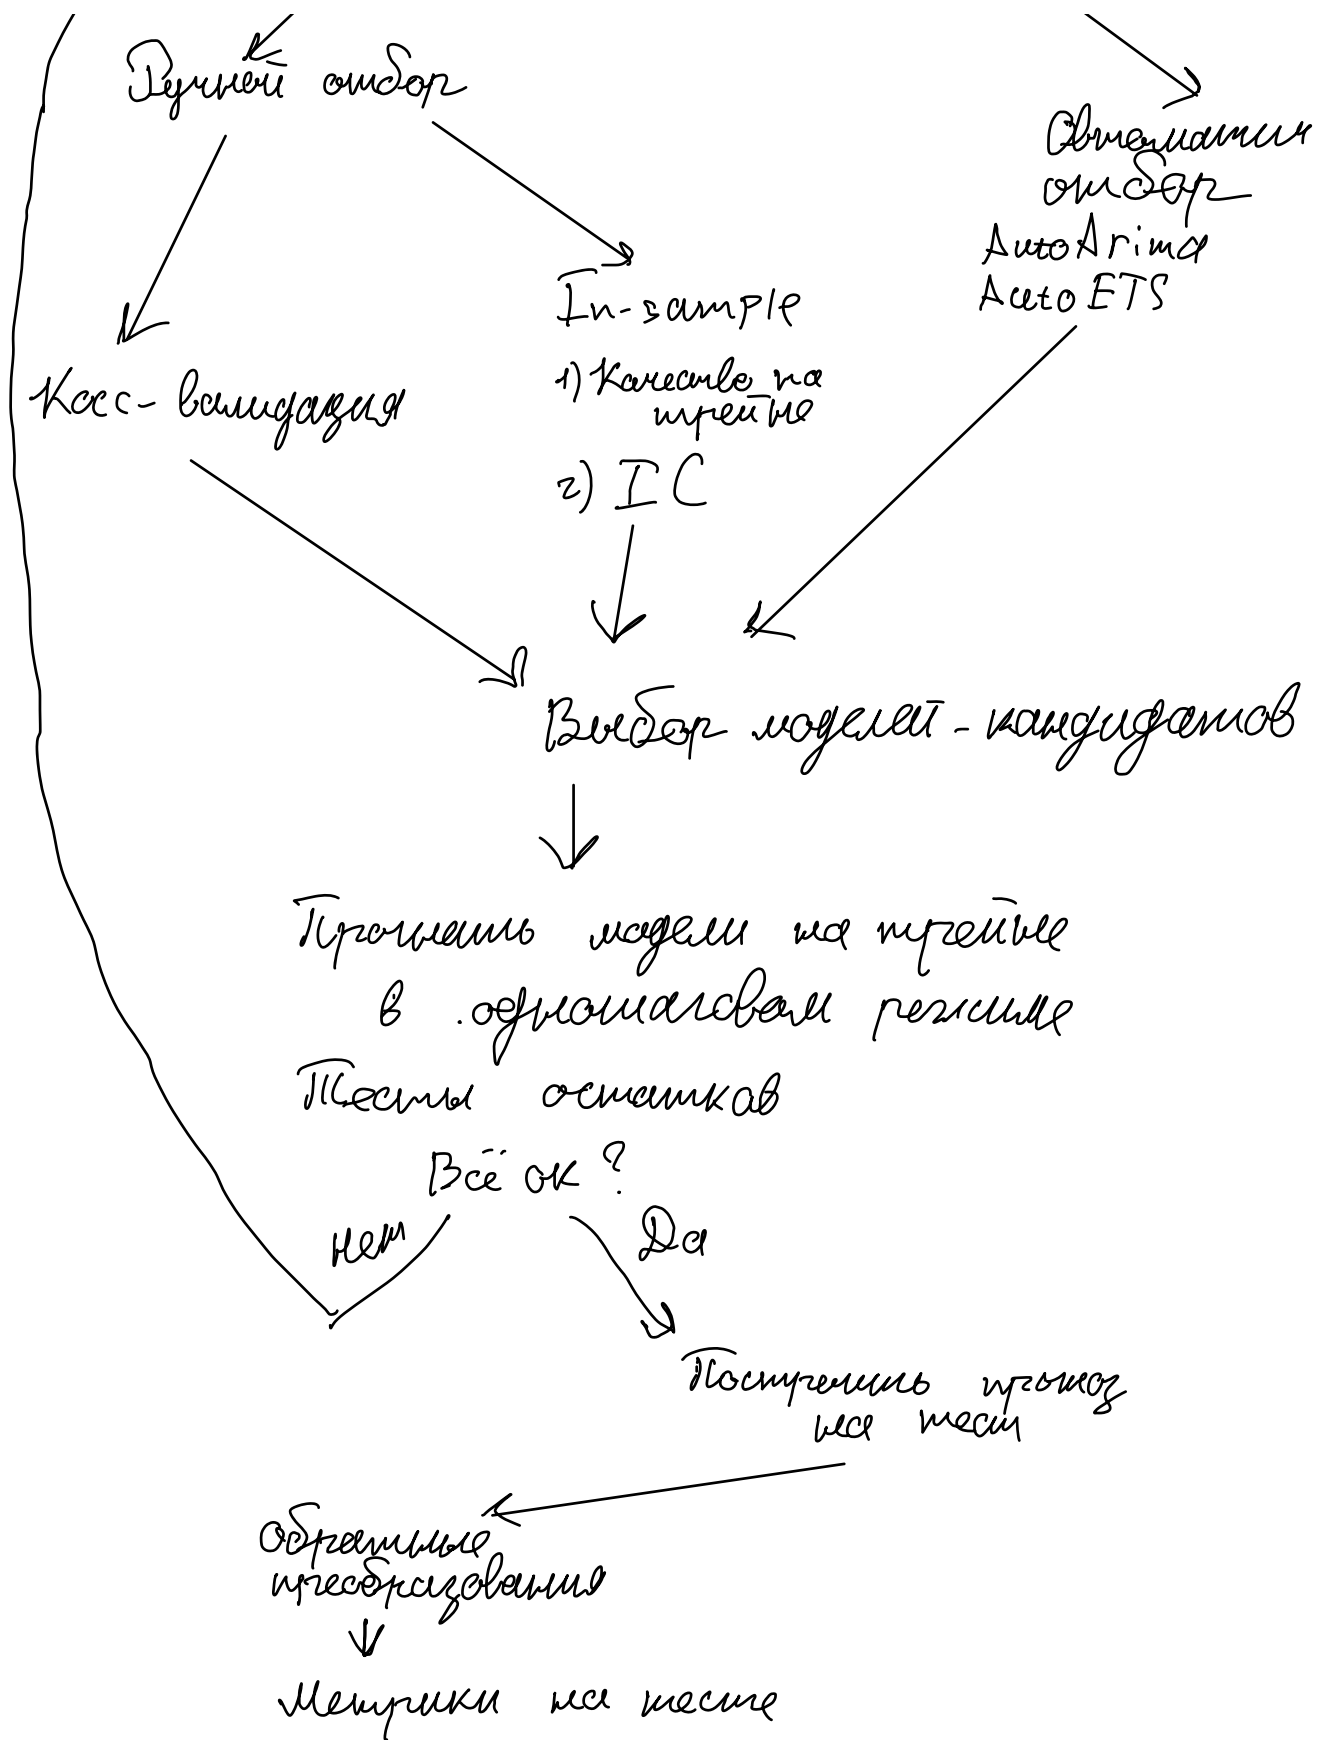 Ручной отбор
Автоматич
отбор
AutoArima
AutoETS
In-sample
1) Качество на
трейне
2) IC
Косс-валидация
Выбор моделей-кандидатов
Прогнать модели на трейне
в одношаговом режиме
Тесты остатков
Всё ок?
нет
Да
Построить прогноз
на тест
Обратные
преобразования
Метрики на тесте